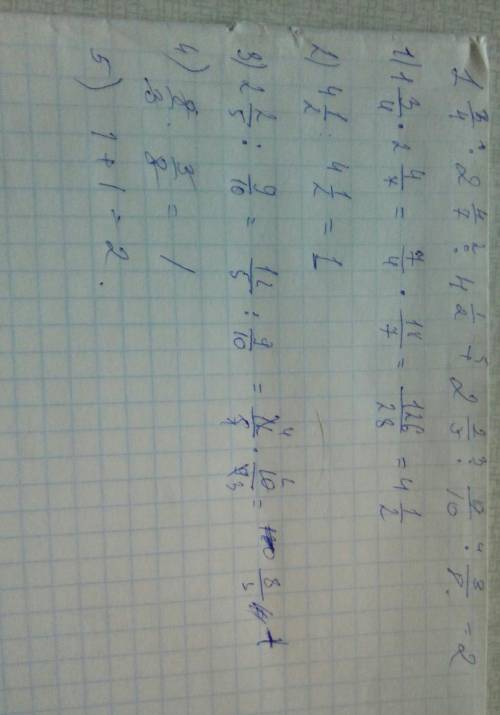 1 3/4 · 2 4/7 : 4 1/2 + 2 2/5 : 9/10 · 3/8 = 2
1) 1 3/4 · 2 4/7 = 7/4 · 18/7 = 126/28 = 4 1/2
2) 4 1/2 : 4 1/2 = 1
3) 2 2/5 : 9/10 = 12/5 : 9/10 = 12/5 · 10/9 = 8/3
4) 8/3 · 3/8 = 1
5) 1 + 1 = 2.